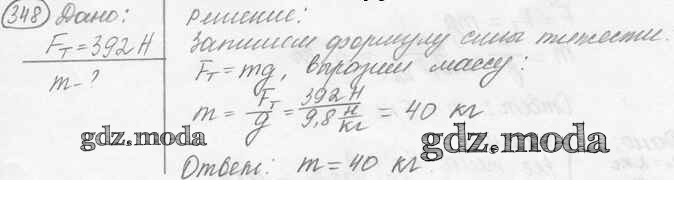 348 Дано:
Fт = 392 Н
m - ?
Решение:
Запишем формулу силы тяжести.
Fт = mg, выразим массу:
m = Fт/g = 392 Н/9,8 Н/кг = 40 кг
gdz.moda
gdz.moda
Ответ: m = 40 кг.